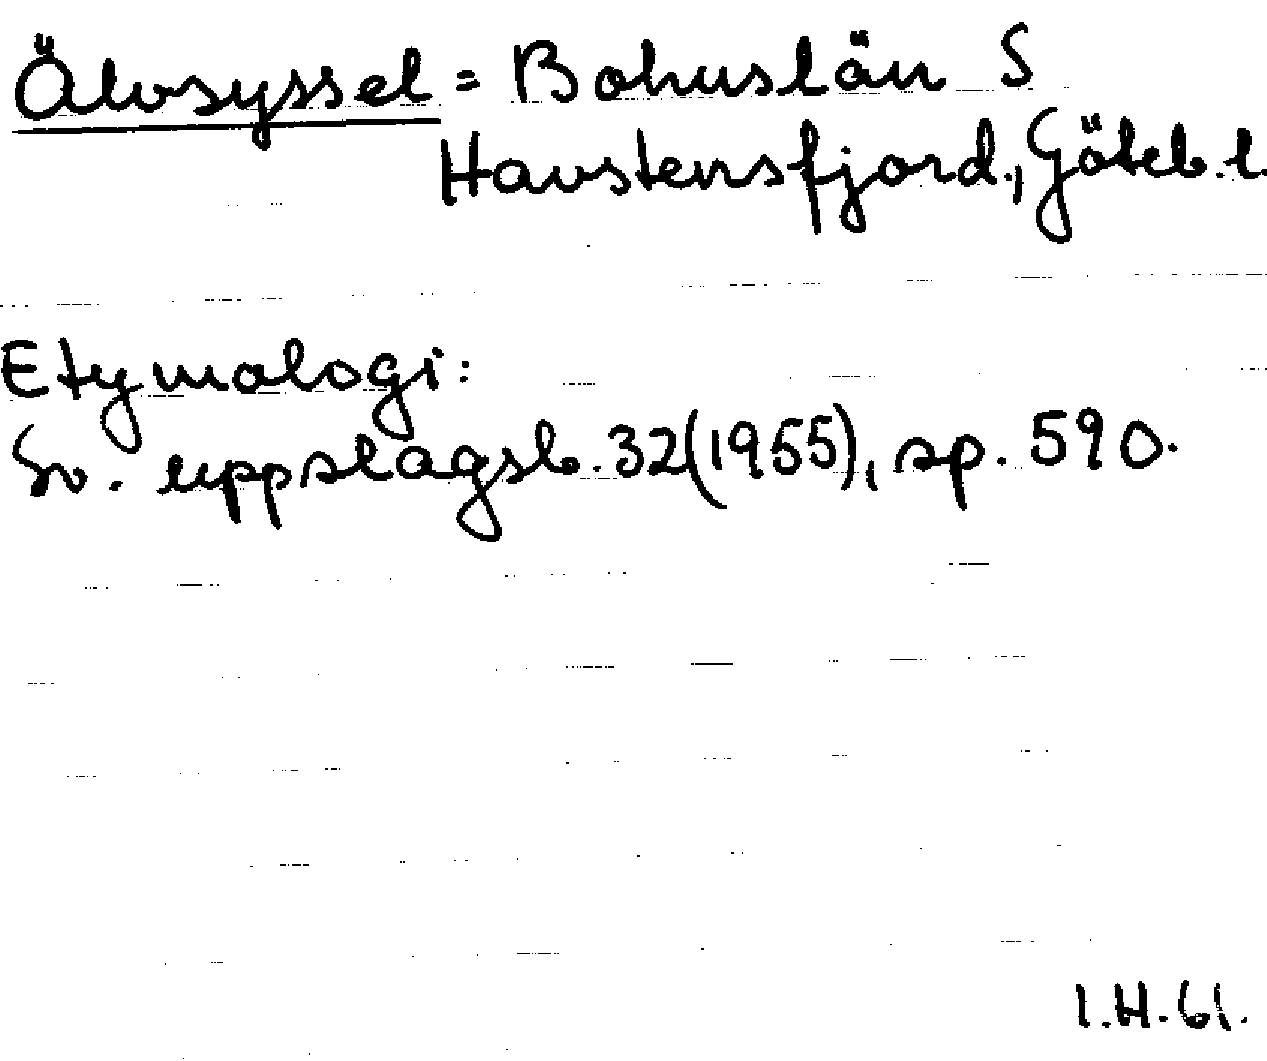 Älvsyssel = Bohuslän S
Havstensfjord, Göteb. l.
Etymologi:
Sv. uppslagsb. 32 (1955), sp. 590.
I.H. 61.